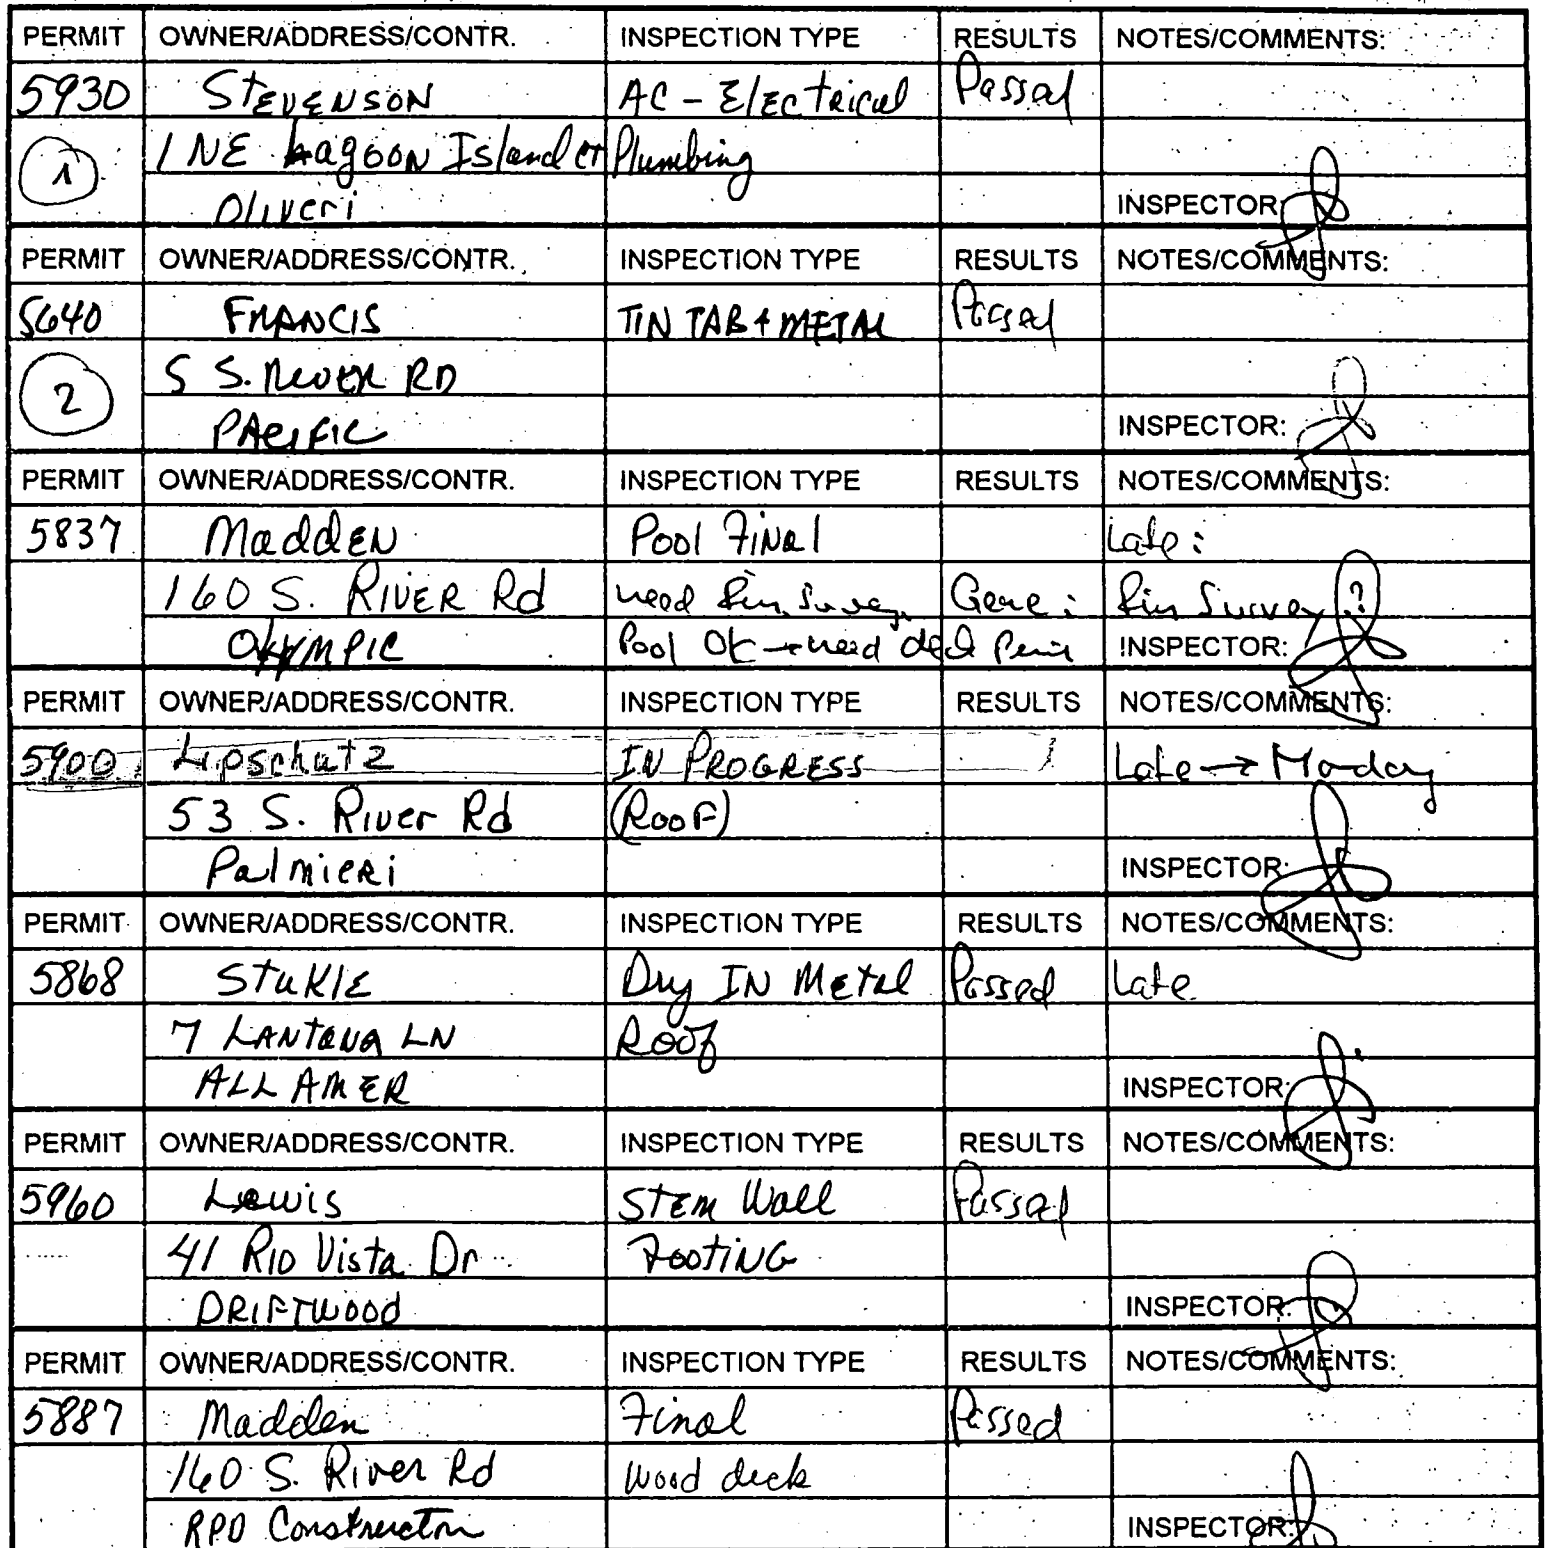 PERMIT OWNER/ADDRESS/CONTR. INSPECTION TYPE RESULTS NOTES/COMMENTS:
5930 STEVENSON AC - Electrical Passed
1 1 NE Lagoon Island Ct Plumbing
Oliveri INSPECTOR:
PERMIT OWNER/ADDRESS/CONTR. INSPECTION TYPE RESULTS NOTES/COMMENTS:
5640 FRANCIS TIN TAB + METAL Passed
2 5 S. RIVER RD
PACIFIC INSPECTOR:
PERMIT OWNER/ADDRESS/CONTR. INSPECTION TYPE RESULTS NOTES/COMMENTS:
5837 Madden Pool Final Late:
160 S. RIVER Rd need Fin. Survey Gene: Fin Survey?
OLYMPIC Pool OK → need deck INSPECTOR:
PERMIT OWNER/ADDRESS/CONTR. INSPECTION TYPE RESULTS NOTES/COMMENTS:
5900 Lipschutz IN PROGRESS Late → Monday
53 S. River Rd (ROOF)
Palmieri INSPECTOR:
PERMIT OWNER/ADDRESS/CONTR. INSPECTION TYPE RESULTS NOTES/COMMENTS:
5868 Stukle Dry IN Metal Passed Late
7 LANTANA LN Roof
ALL AMER INSPECTOR:
PERMIT OWNER/ADDRESS/CONTR. INSPECTION TYPE RESULTS NOTES/COMMENTS:
5960 Lewis STEM Wall Passed
41 Rio Vista Dr FOOTING
DRIFTWOOD INSPECTOR:
PERMIT OWNER/ADDRESS/CONTR. INSPECTION TYPE RESULTS NOTES/COMMENTS:
5887 Madden Final Passed
160 S. River Rd Wood deck
RPD Construction INSPECTOR: